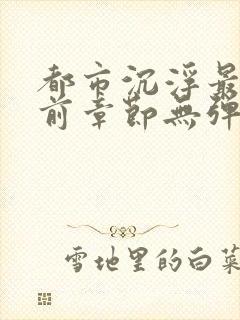 都市沉浮最
前章節無彈
雪地里的白菜